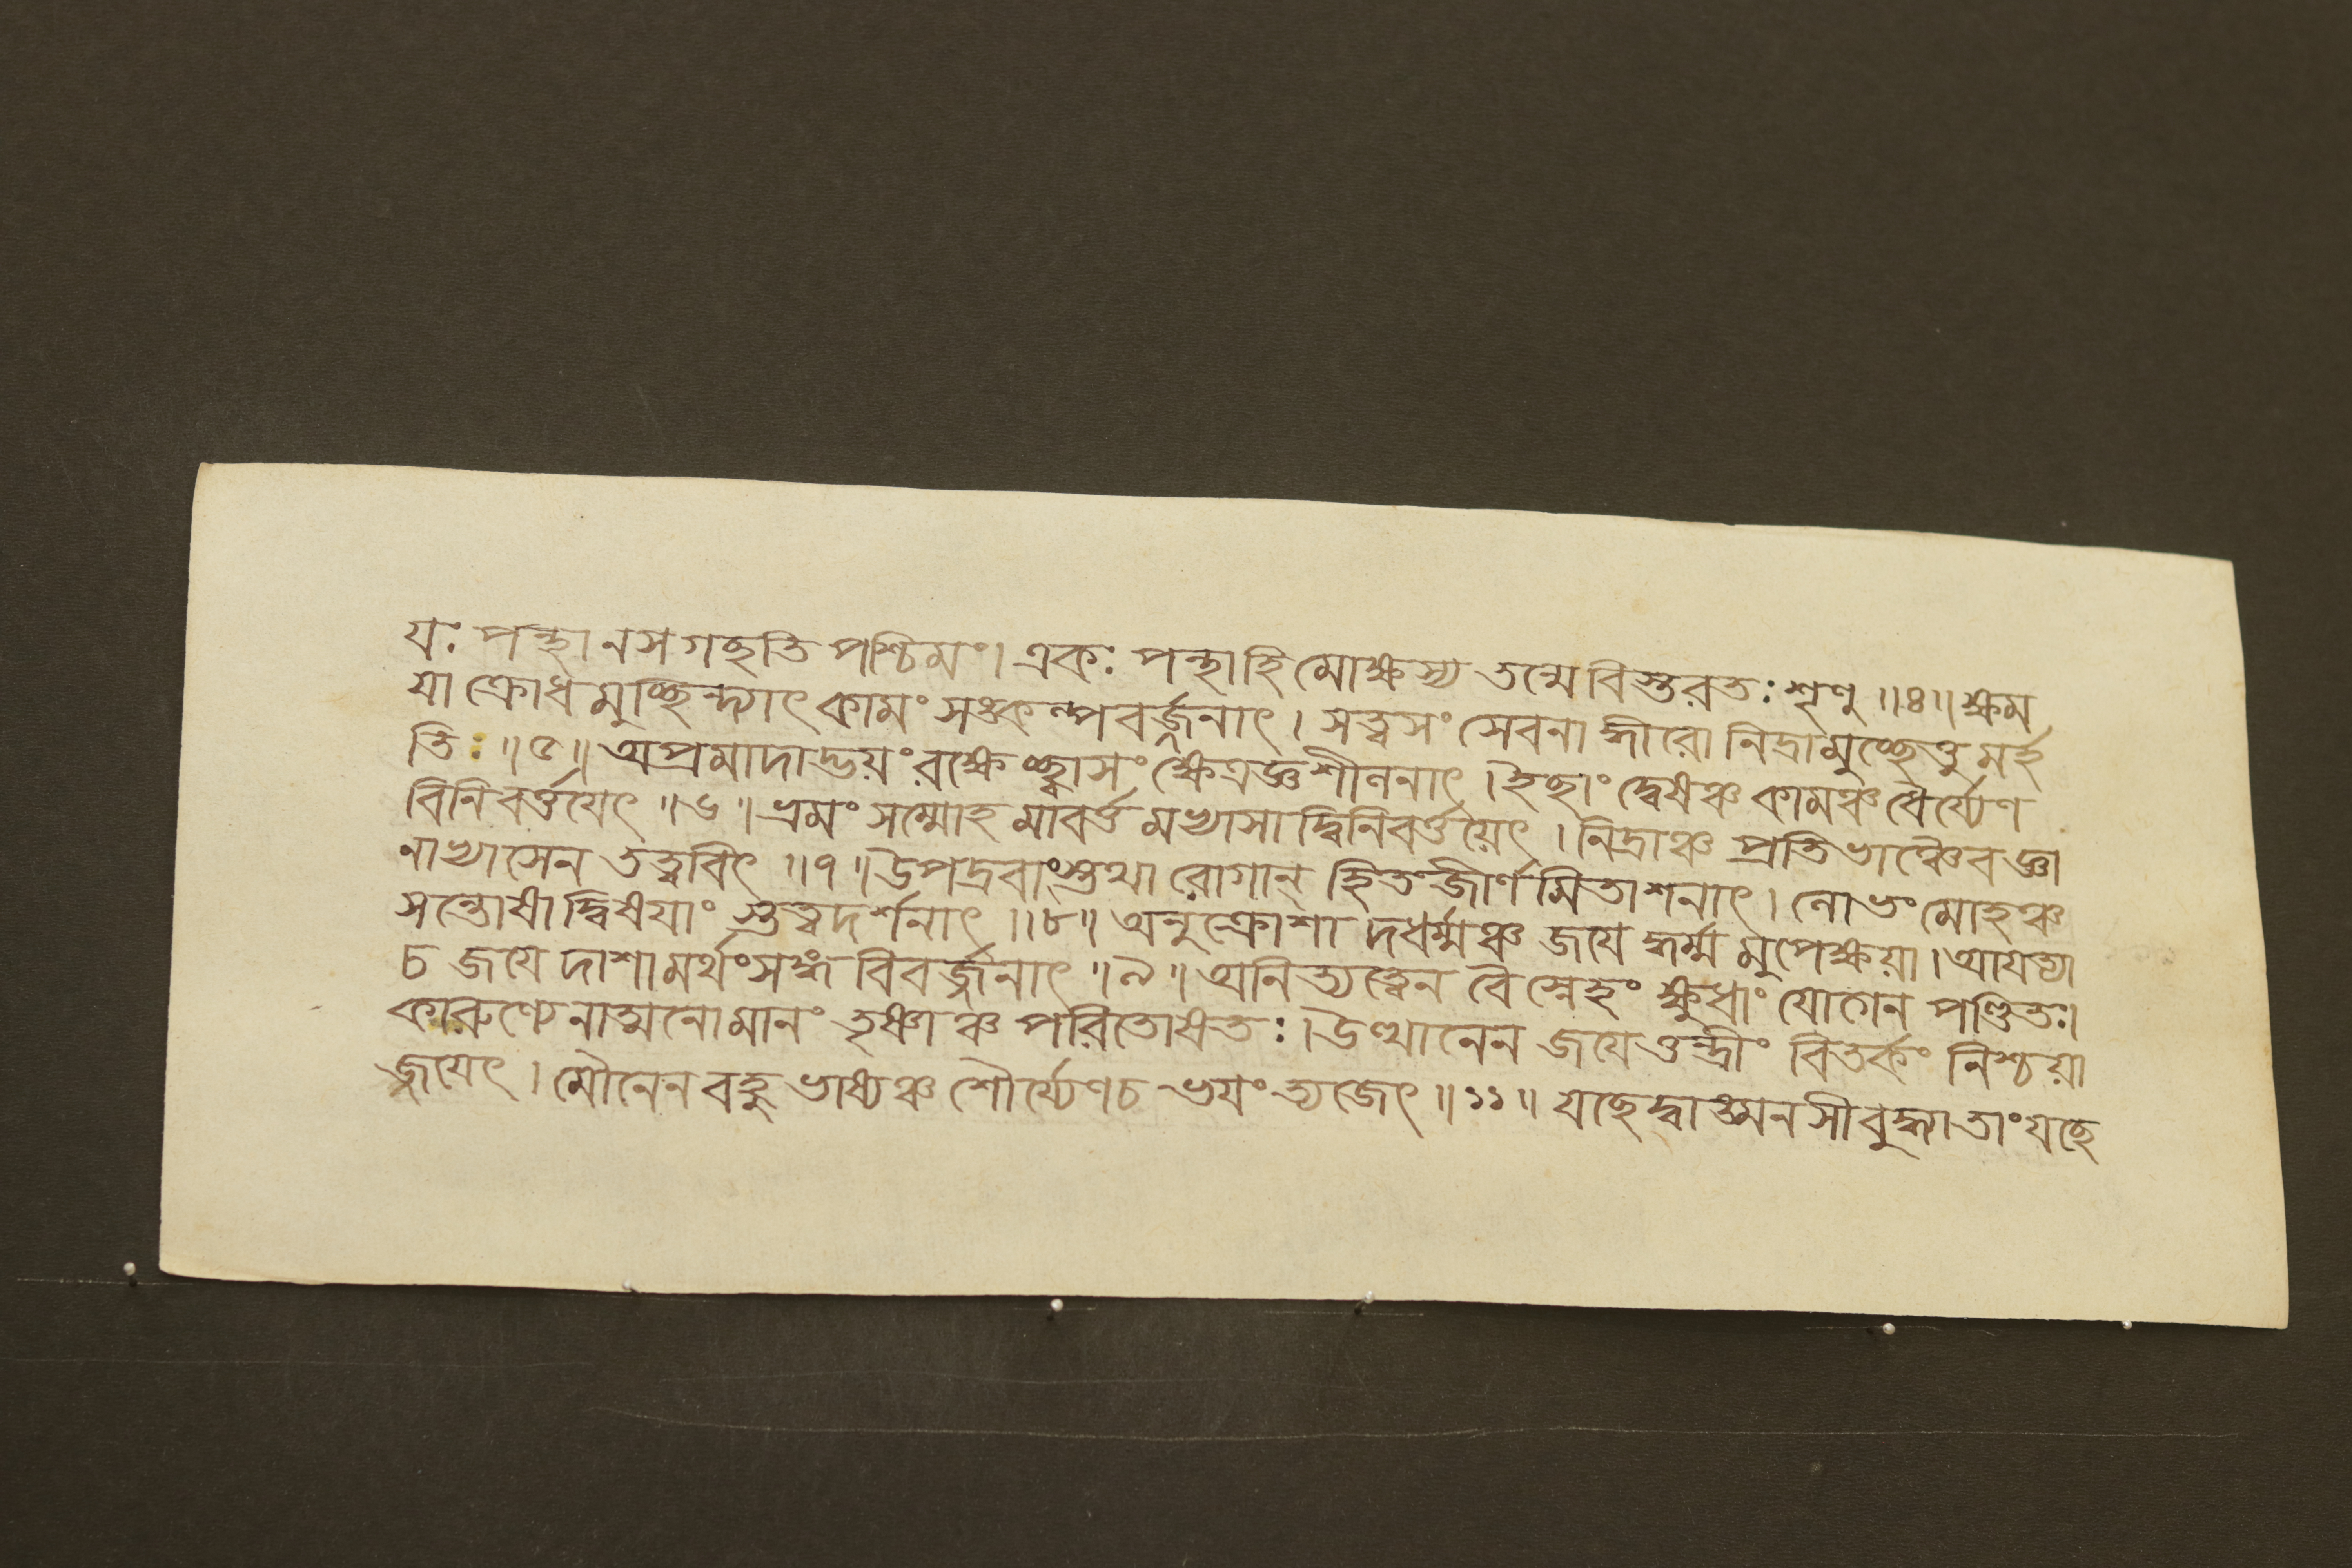 যঃ পন্থানসগছতি পশ্চিমং। একঃ পন্থাহি মোক্ষস্য তন্মে বিস্তরতঃ শৃণু ॥৪॥ ক্ষম
যা ক্রোধমুচ্ছিন্দ্যাৎ কামং সঙ্কল্পবর্জ্জনাৎ। সত্ত্বসং সেবনাদ্ধীরো নিদ্রামুচ্ছেত্তুমর্হ
তিঃ ॥৫॥ অপ্রমাদাদ্ভয়ং রক্ষেচ্ছ্বাসং ক্ষেত্রজ্ঞশীলনাৎ। ইছাং দ্বেষঞ্চ কামঞ্চ ধৈর্য্যেণ
বিনিবর্ত্তয়েৎ ॥৬॥ ভ্রমং সম্মোহমাবর্ত্তমভ্যাসাদ্বিনিবর্ত্তয়েৎ। নিদ্রাঞ্চ প্রতিভাঞ্চৈবজ্ঞা
নাভ্যাসেন তত্ত্ববিৎ ॥৭॥ উপদ্রবাংস্তথা রোগান্ হিতংজীর্ণমিতাশনাৎ। লোভং মোহঞ্চ
সন্তোষাদ্বিষয়াংস্তত্ত্বদর্শনাৎ ॥৮॥ অনুক্রোশাদধর্ম্মঞ্চ জয়েদ্ধর্ম্মমুপেক্ষয়া। আয়ত্যা
চ জয়েদাশামর্থংসঙ্গ বিবর্জ্জনাৎ ॥৯॥ অনিত্যত্বেন বৈস্নেহং ক্ষুধাং যোগেন পণ্ডিতঃ।
কারুণ্যেনাত্মনোমানং তৃষ্ণাঞ্চ পরিতোষতঃ। উত্থানেন জয়েত্তন্দ্রীং বিতর্কং নিশ্চয়া
জ্জয়েৎ। মৌনেন বহুভাষ্যঞ্চ শৌর্য্যেণচ ভয়ংত্যজেৎ ॥১১॥ যছেদ্বাঙ্মনসীবুদ্ধ্যাতাংযছে